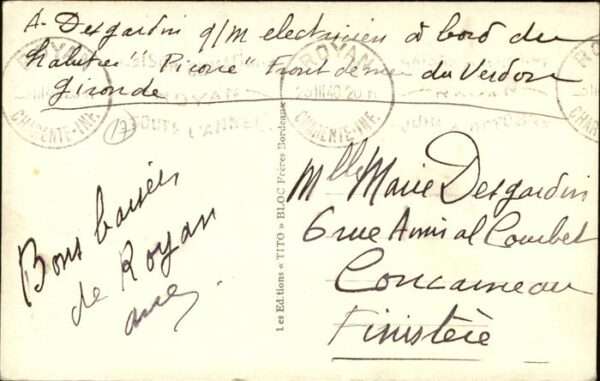 A. Desgardin q/m electricien à bord du
chalutier "Picorre" Front de mer du Verdon
Gironde
ROYAN
26 III 40 20
CHARENTE-INF.
ROYAN
TOUTE L'ANNEE
ROYAN
CHARENTE-INF.
Les Editions « TITO » BLOC Frères Bordeaux
Bons baisers
de Royan
Mlle Marie Desgardin
6 rue Amiral Courbet
Concarneau
Finistère